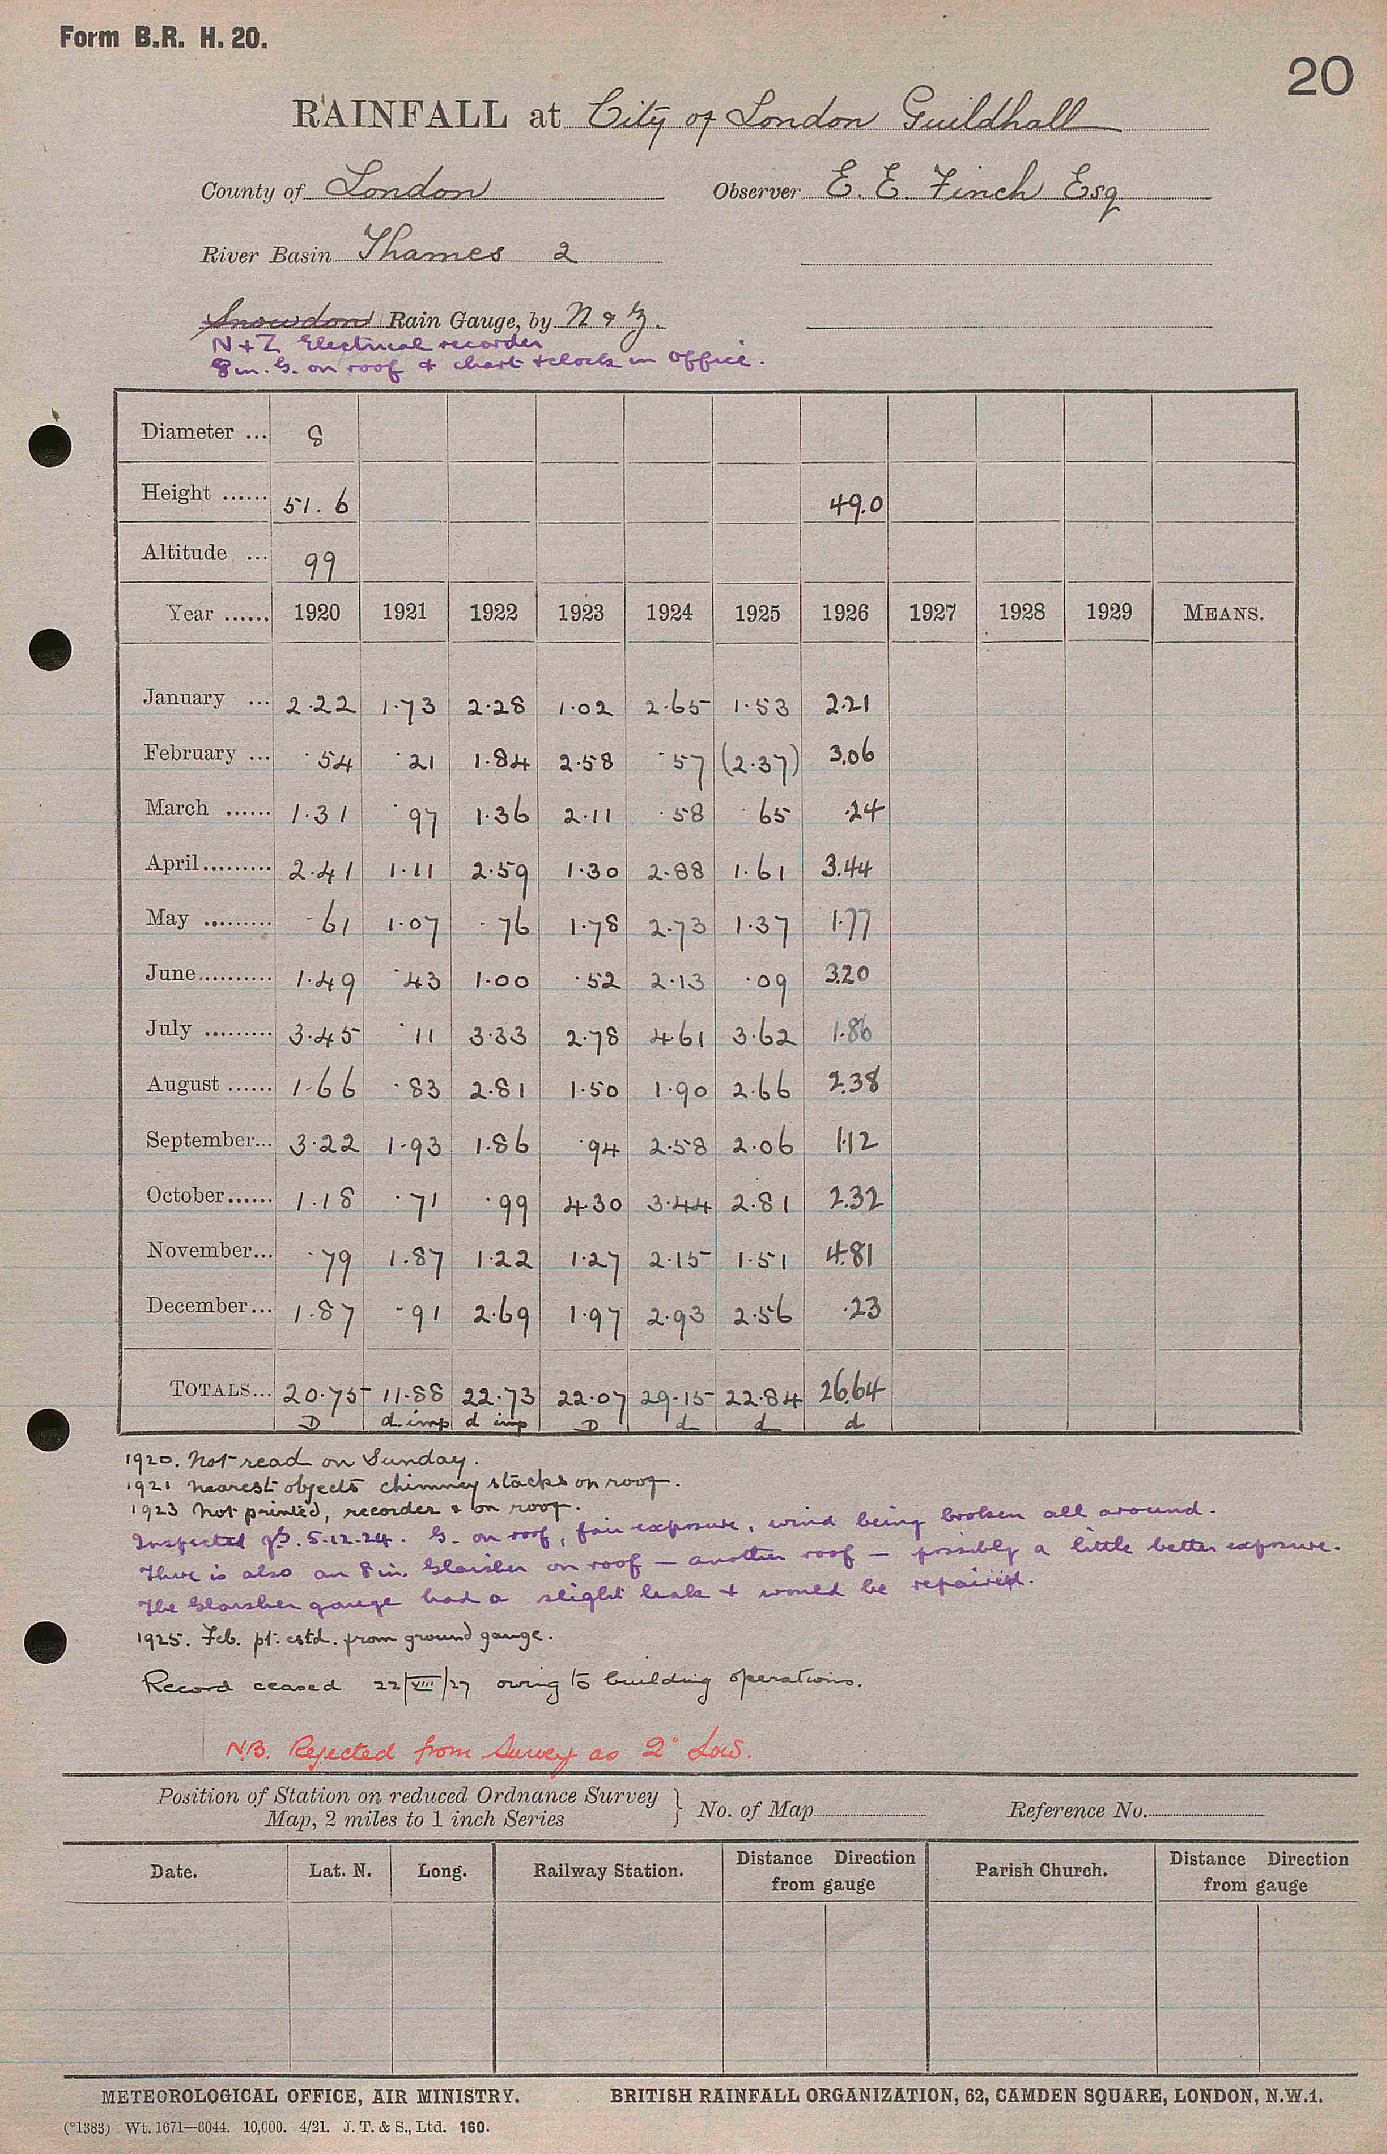 Form B.R. H. 20.
20
RAINFALL at City of London Guildhall
County of London Observer E. E. Finch Esq
River Basin Thames 2
Snowdon Rain Gauge, by N & Z.
N + Z Electrical recorder
8 in. G. on roof & chart + clock in office.
Diameter ... 8
Height ...... 51.6 49.0
Altitude ... 99
Year ...... 1920 1921 1922 1923 1924 1925 1926 1927 1928 1929 MEANS.
January ... 2.22 1.73 2.28 1.02 2.65 1.53 2.21
February ... .54 .21 1.84 2.58 .57 (2.37) 3.06
March ...... 1.31 .97 1.36 2.11 .58 .65 .24
April ......... 2.41 1.11 2.59 1.30 2.88 1.61 3.44
May ......... .61 1.07 .76 1.78 2.73 1.37 1.77
June .......... 1.49 .43 1.00 .52 2.13 .09 3.20
July ......... 3.45 .11 3.33 2.78 4.61 3.62 1.86
August ...... 1.66 .83 2.81 1.50 1.90 2.66 2.38
September... 3.22 1.93 1.86 .94 2.58 2.06 1.12
October...... 1.18 .71 .99 4.30 3.44 2.81 2.32
November... .79 1.87 1.22 1.27 2.15 1.51 4.81
December... 1.87 .91 2.69 1.97 2.93 2.56 .23
TOTALS... 20.75 11.88 22.73 22.07 29.15 22.84 26.64
D d imp d imp D d d d
1920. Not read on Sunday.
1921 nearest objects chimney stacks on roof.
1923 Not printed, recorder & on roof.
Inspected 5.12.24. G. on roof, fair exposure, wind being broken all around.
There is also an 8 in. Glaisher on roof — another roof — possibly a little better exposure.
The Glaisher gauge had a slight leak + would be repaired.
1925. Feb. pt. estd. from ground gauge.
Record ceased 22/VIII/27 owing to building operations.
N.B. Rejected from Survey as 2" Low.
Position of Station on reduced Ordnance Survey
Map, 2 miles to 1 inch Series } No. of Map Reference No.
Date. Lat. N. Long. Railway Station. Distance Direction from gauge Parish Church. Distance Direction from gauge
METEOROLOGICAL OFFICE, AIR MINISTRY. BRITISH RAINFALL ORGANIZATION, 62, CAMDEN SQUARE, LONDON, N.W.1.
(*1383) Wt. 1671—6044. 10,000. 4/21. J. T. & S., Ltd. 160.